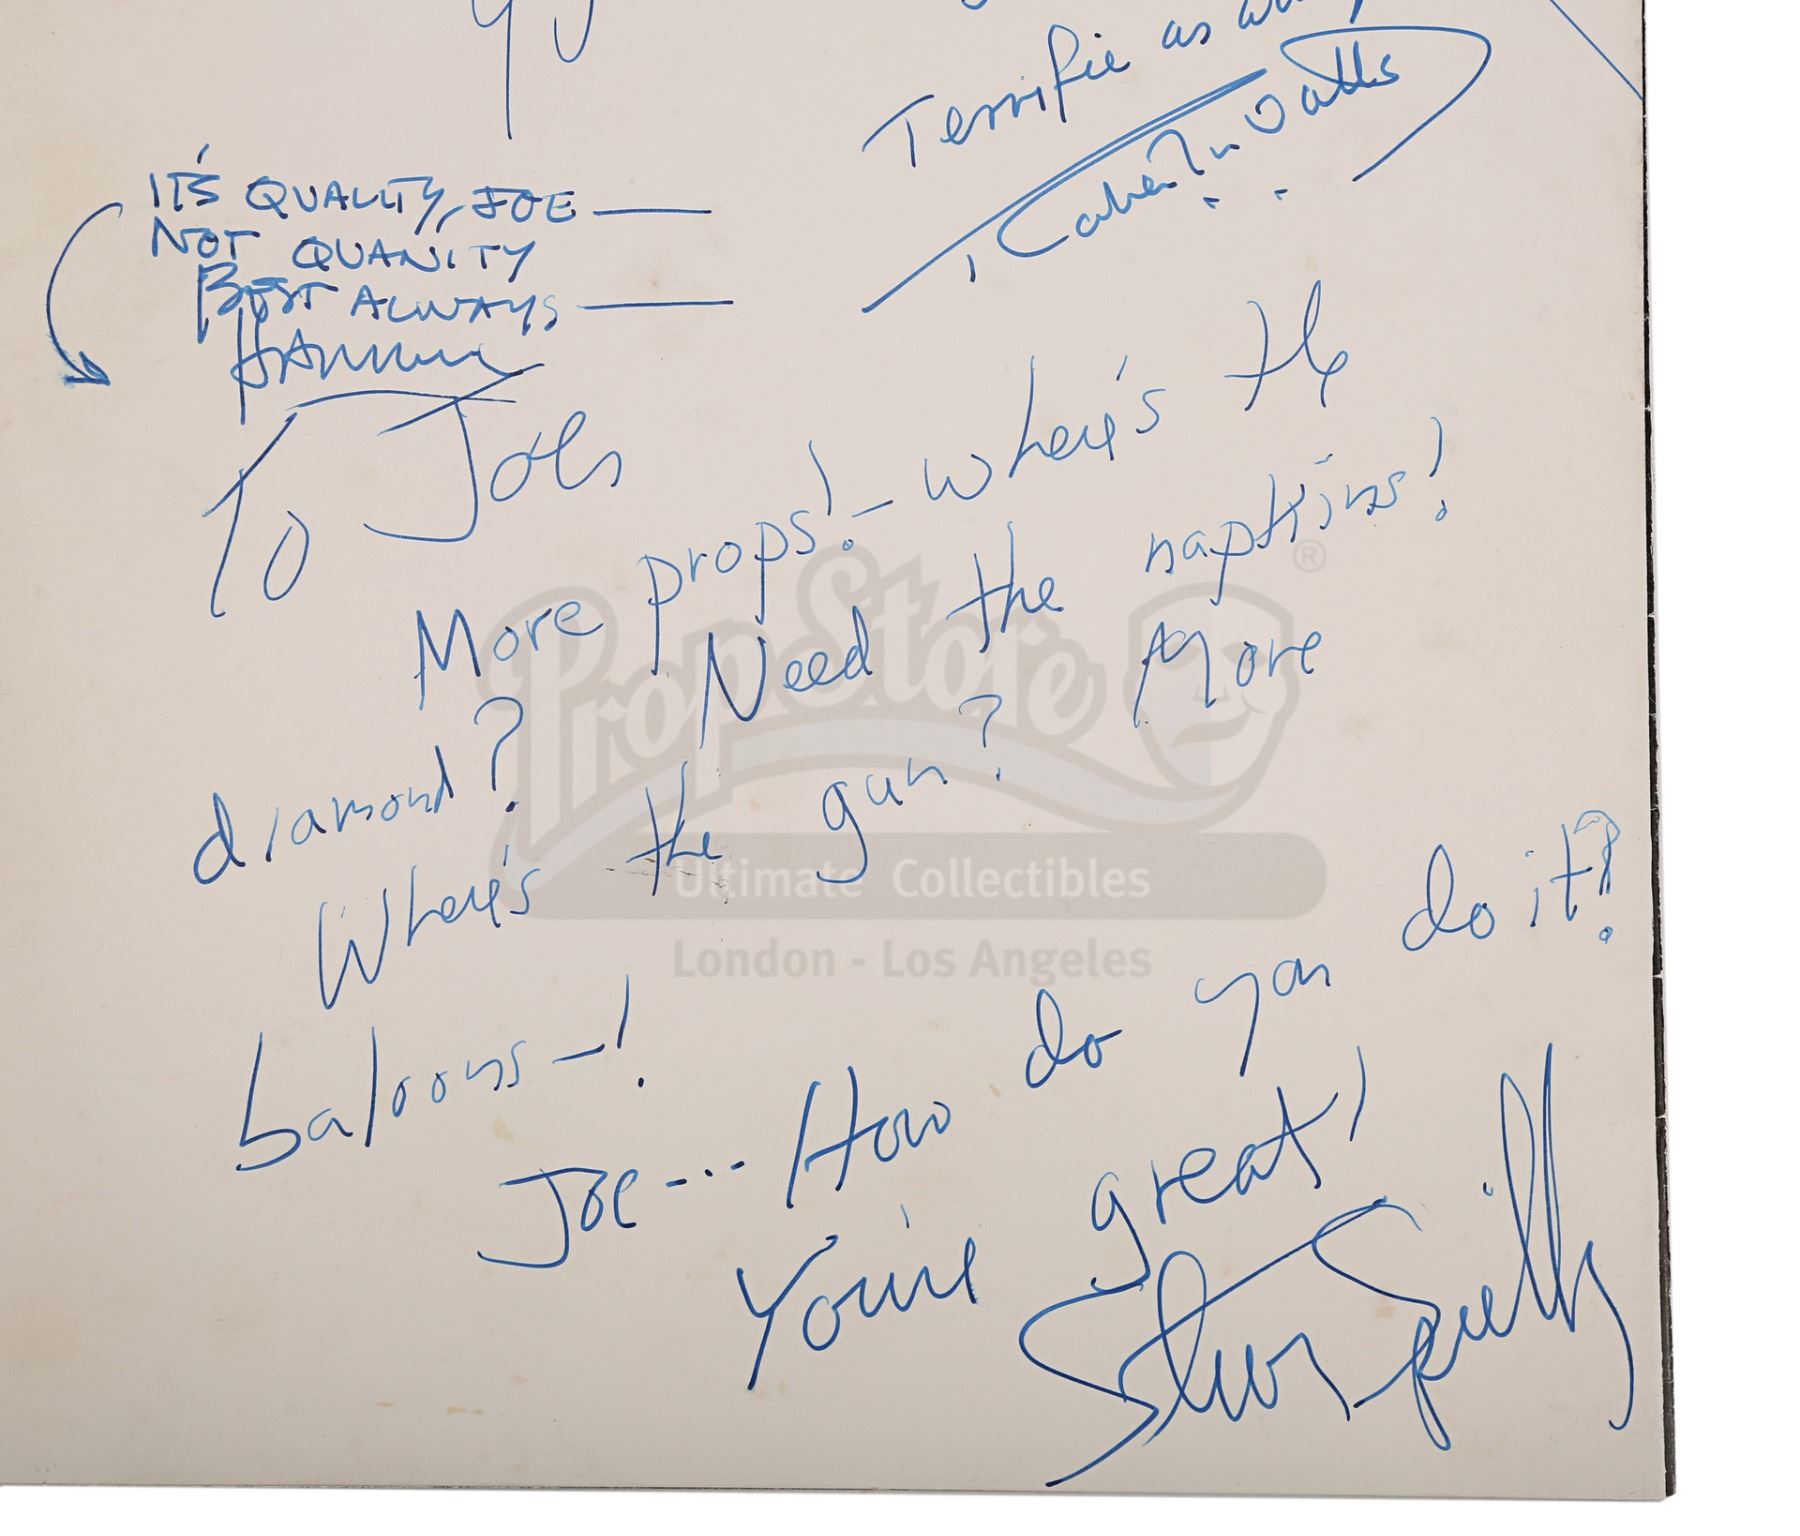 Terrific as
IT'S QUALITY, JOE —
NOT QUANITY
BEST ALWAYS —
To Joe
More props! – where's the
diamond? Need the napkins!
Where's the gun? More
baloons –!
Joe... How do you do it?
You're great!
PropStore
®
Ultimate Collectibles
London - Los Angeles